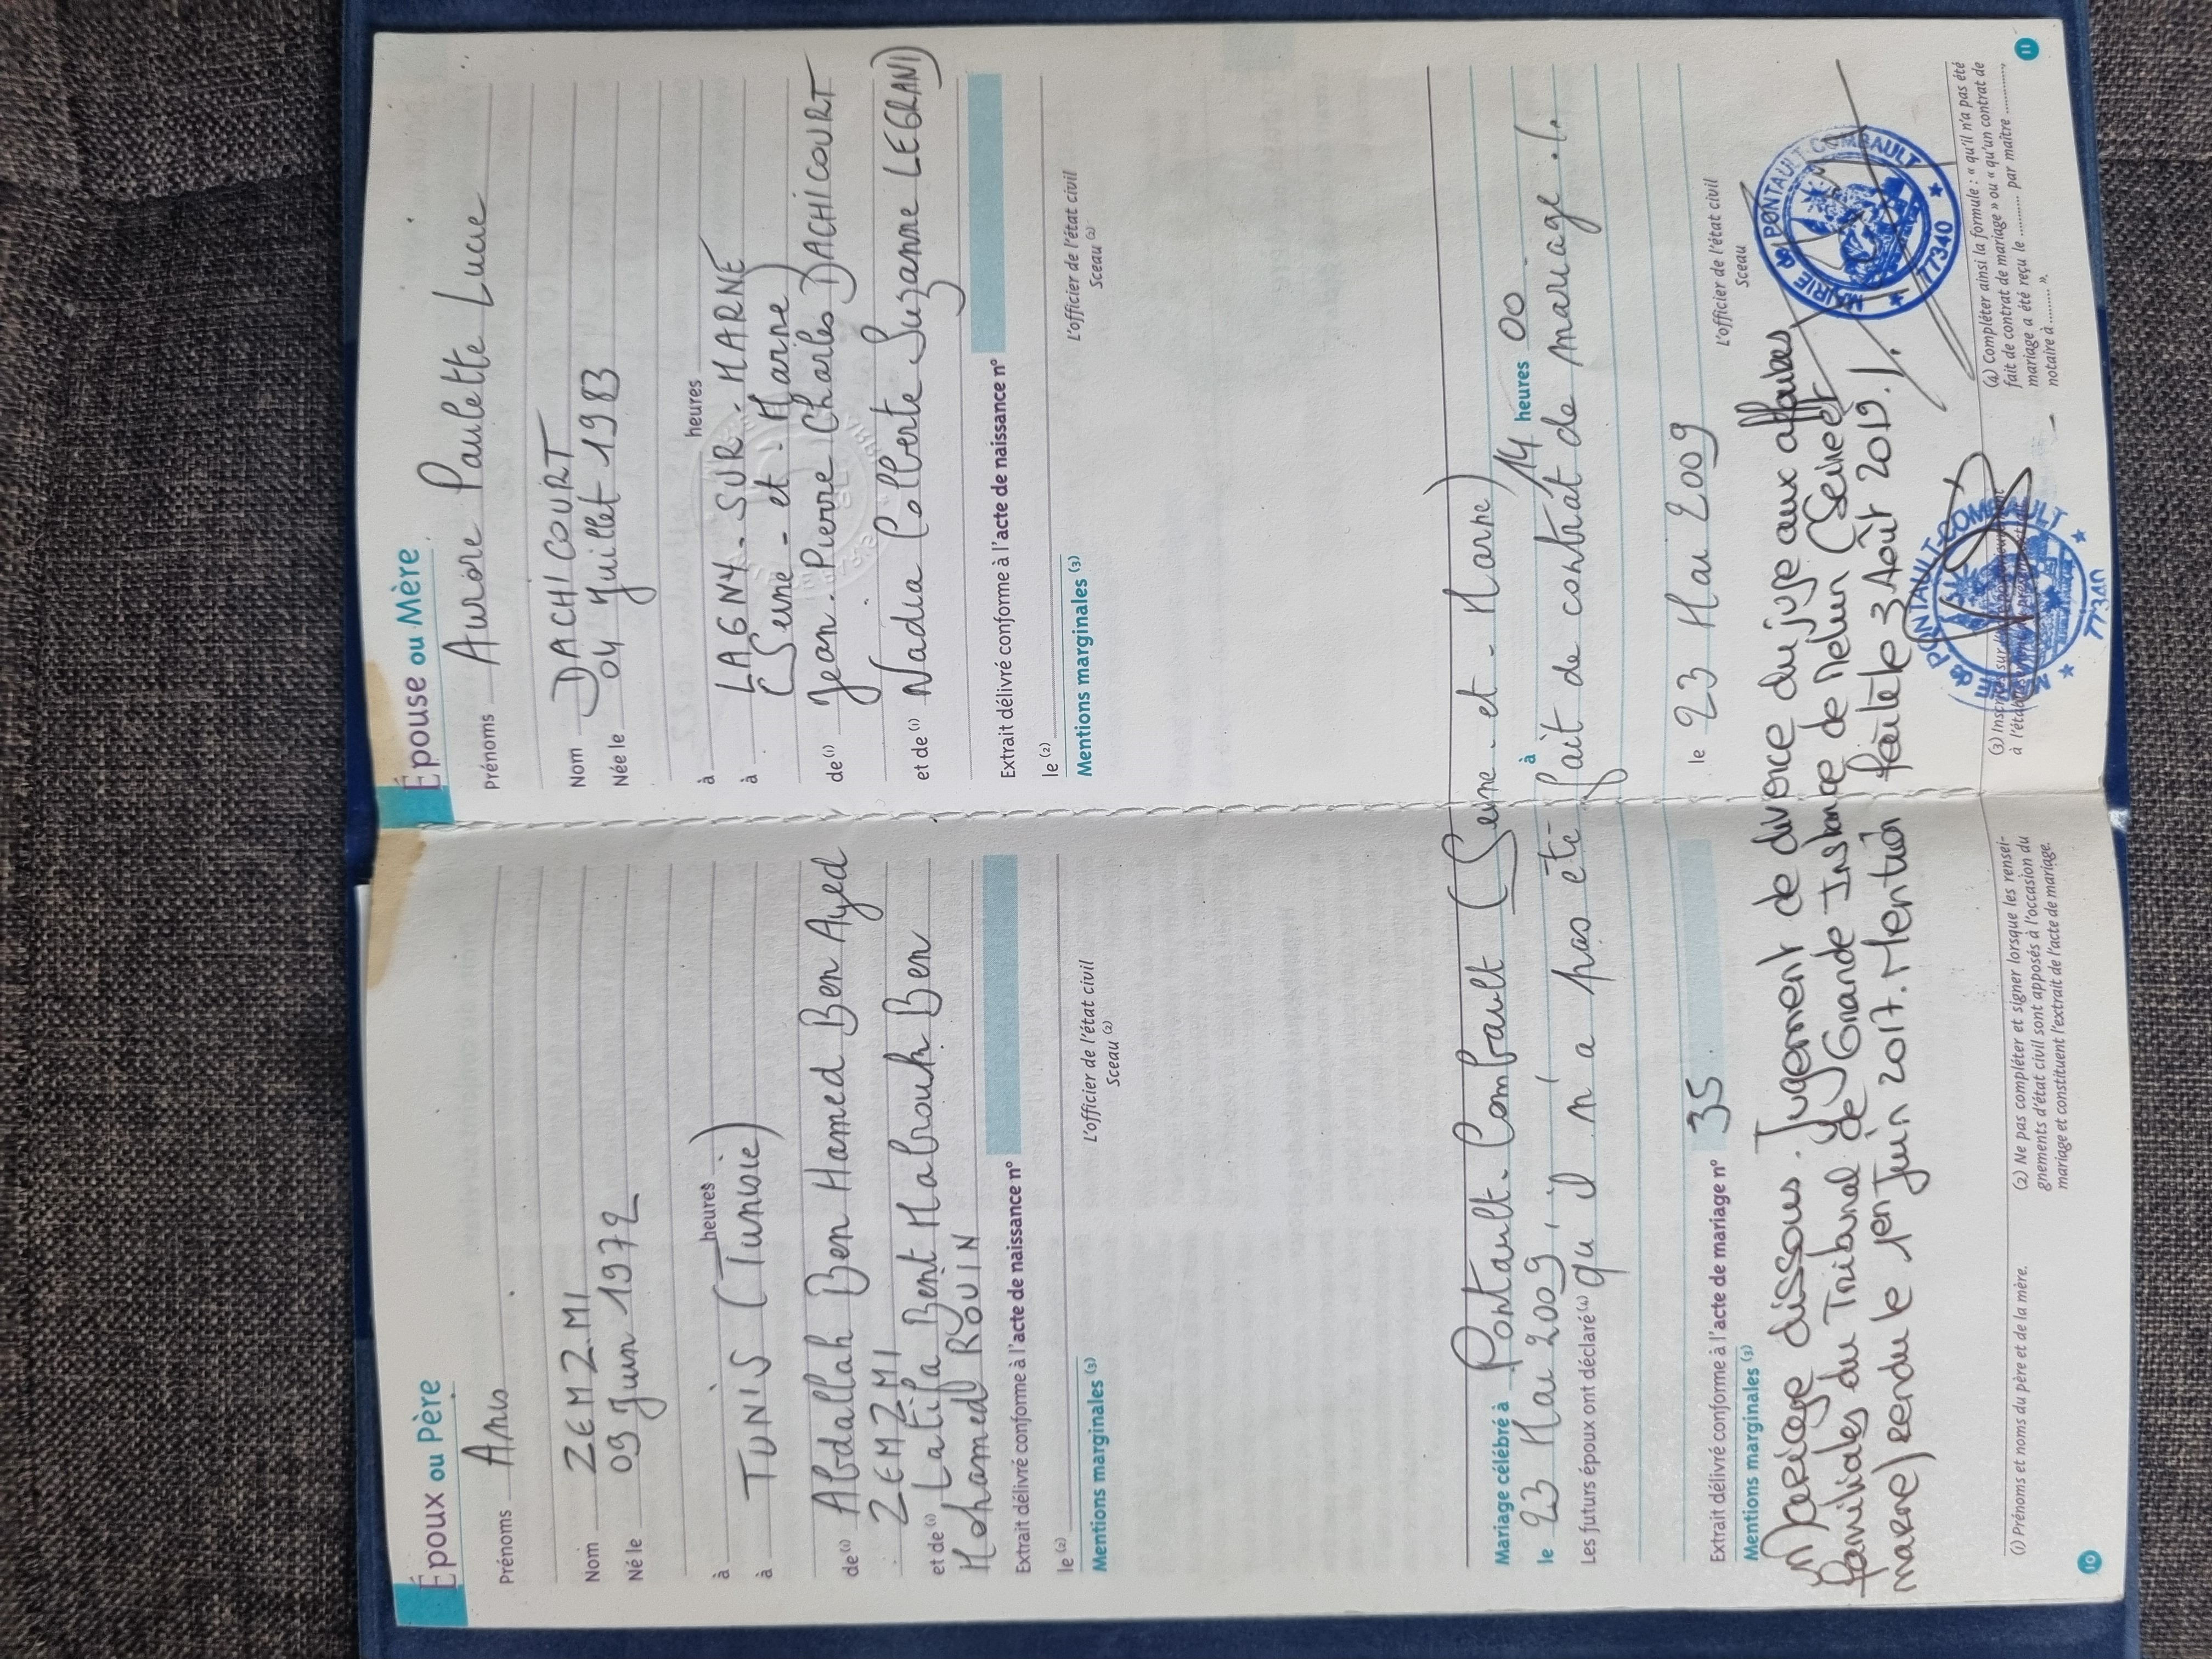 Époux ou Père
Prénoms Anis
Nom ZEMZMI
Né le 09 Juin 1972
à heures
à TUNIS (Tunisie)
de (1) Abdallah Ben Hamed Ben Ayed
ZEMZMI
et de (1) Latifa Bent Mabrouk Ben
Mohamed ROUIN
Extrait délivré conforme à l'acte de naissance n°
le (2)
L'officier de l'état civil
Sceau (2)
Mentions marginales (3)
Épouse ou Mère
Prénoms Aurore Paulette Lucie
Nom DACHICOURT
Née le 04 Juillet 1983
à heures
à LAGNY-SUR-MARNE
(Seine-et-Marne)
de (1) Jean-Pierre Charles DACHICOURT
et de (1) Nadia Colberte Suzanne LEGRAND
Extrait délivré conforme à l'acte de naissance n°
le (2)
L'officier de l'état civil
Sceau (2)
Mentions marginales (3)
Mariage célébré à Pontault-Combault (Seine-et-Marne)
le 23 Mai 2009, à 14 heures 00
Les futurs époux ont déclaré (4) qu'il n'a pas été fait de contrat de mariage./.
Extrait délivré conforme à l'acte de mariage n° 35 le 23 Mai 2009
Mentions marginales (3)
L'officier de l'état civil
Sceau
Mariage dissous. Jugement de divorce du juge aux affaires
familiales du Tribunal de Grande Instance de Melun (Seine et
marne) rendu le 1er Juin 2017. Mention faite le 3 Août 2019./.
MAIRIE de PONTAULT COMBAULT
77340
PONTAULT-COMBAULT
77340
(1) Prénoms et noms du père et de la mère.
(2) Ne pas compléter et signer lorsque les rensei-
gnements d'état civil sont apposés à l'occasion du
mariage et constituent l'extrait de l'acte de mariage.
(3)
à
(4) Compléter ainsi la formule : « qu'il n'a pas été
fait de contrat de mariage » ou « qu'un contrat de
mariage a été reçu le .......... par maître ..........,
notaire à ......... ».
10
11